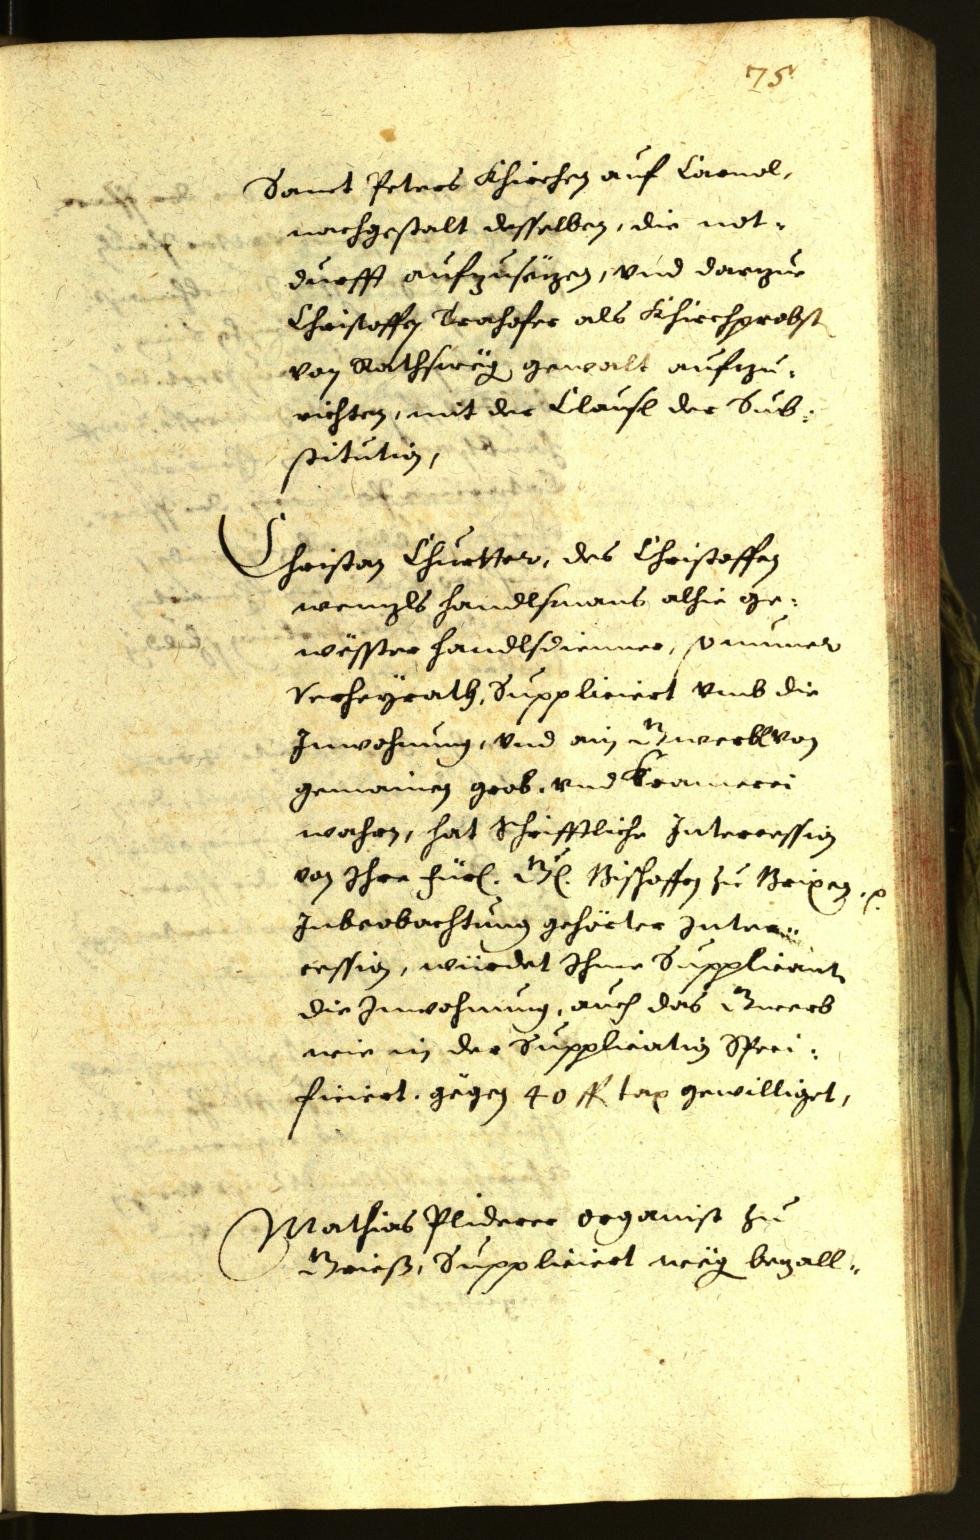 75
Sanct Peters Khirchen auf Carnol,
nachgestalt desselben, die not-
durfft aufzusetzen, vnd darzue
Christoffen Trahofer als Khirchprobst
von Rathsweg gewalt aufzu-
richten, mit der Clausl der Sub-
stitution,
Christan Churtter, des Christoffen
wenzls handlsmans alhie ge-
wesster handlsdiener, so nunmer
Verheyrath, Suppliciert vmb die
Inwohnung, vnd ain Gwerbl von
gemainen grob. vnd Kramerei
wahrn, hat Schrifftliche Intercession
von Ihre Fürl. Gl. Bischoffen zu Brixen.
Inbeobachtung gehörter Inter-
cession, würdet Ihme Supplicant
die Inwohnung, auch das Gwerb
wie in der Supplication Speci-
ficiert. gegen 40 fl. tax gewilliget,
Mathias Pliderer Organist zu
Grieß, Suppliciert weg bezall-